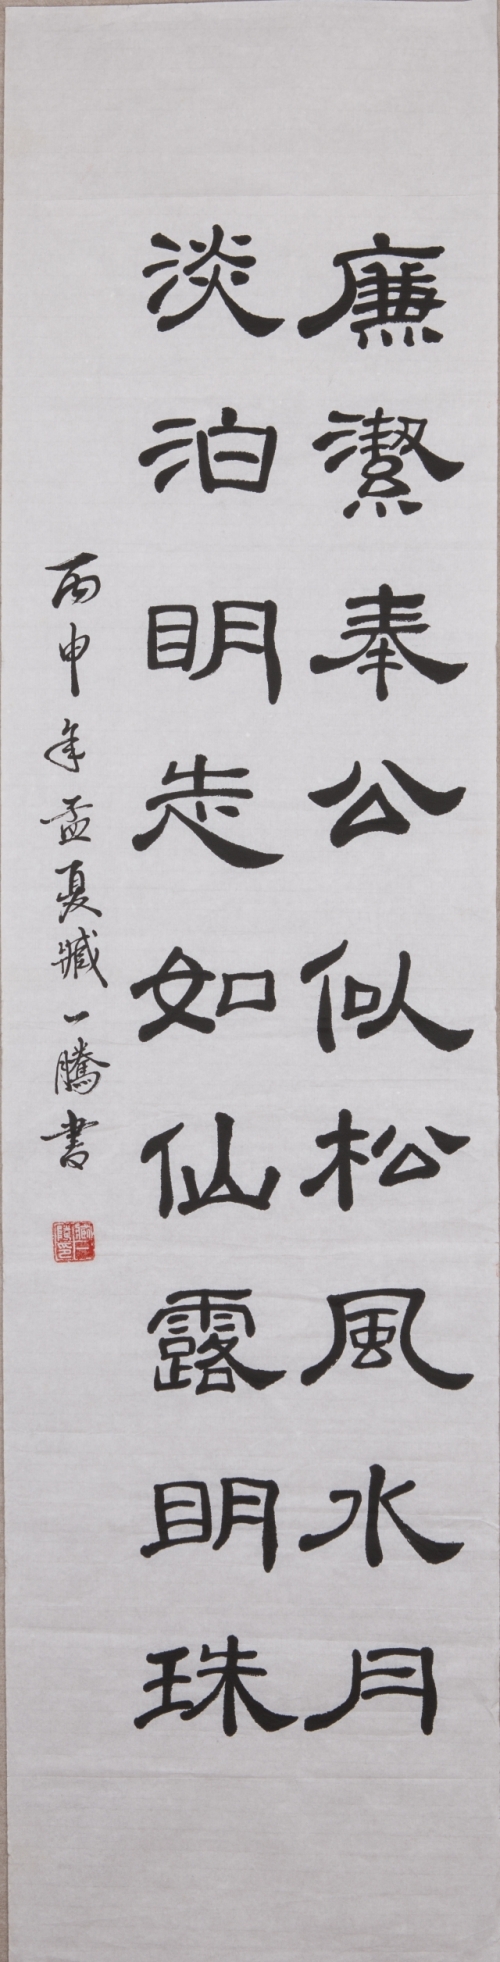 廉潔奉公似松風水月
淡泊明志如仙露明珠
丙申年孟夏臧一騰書